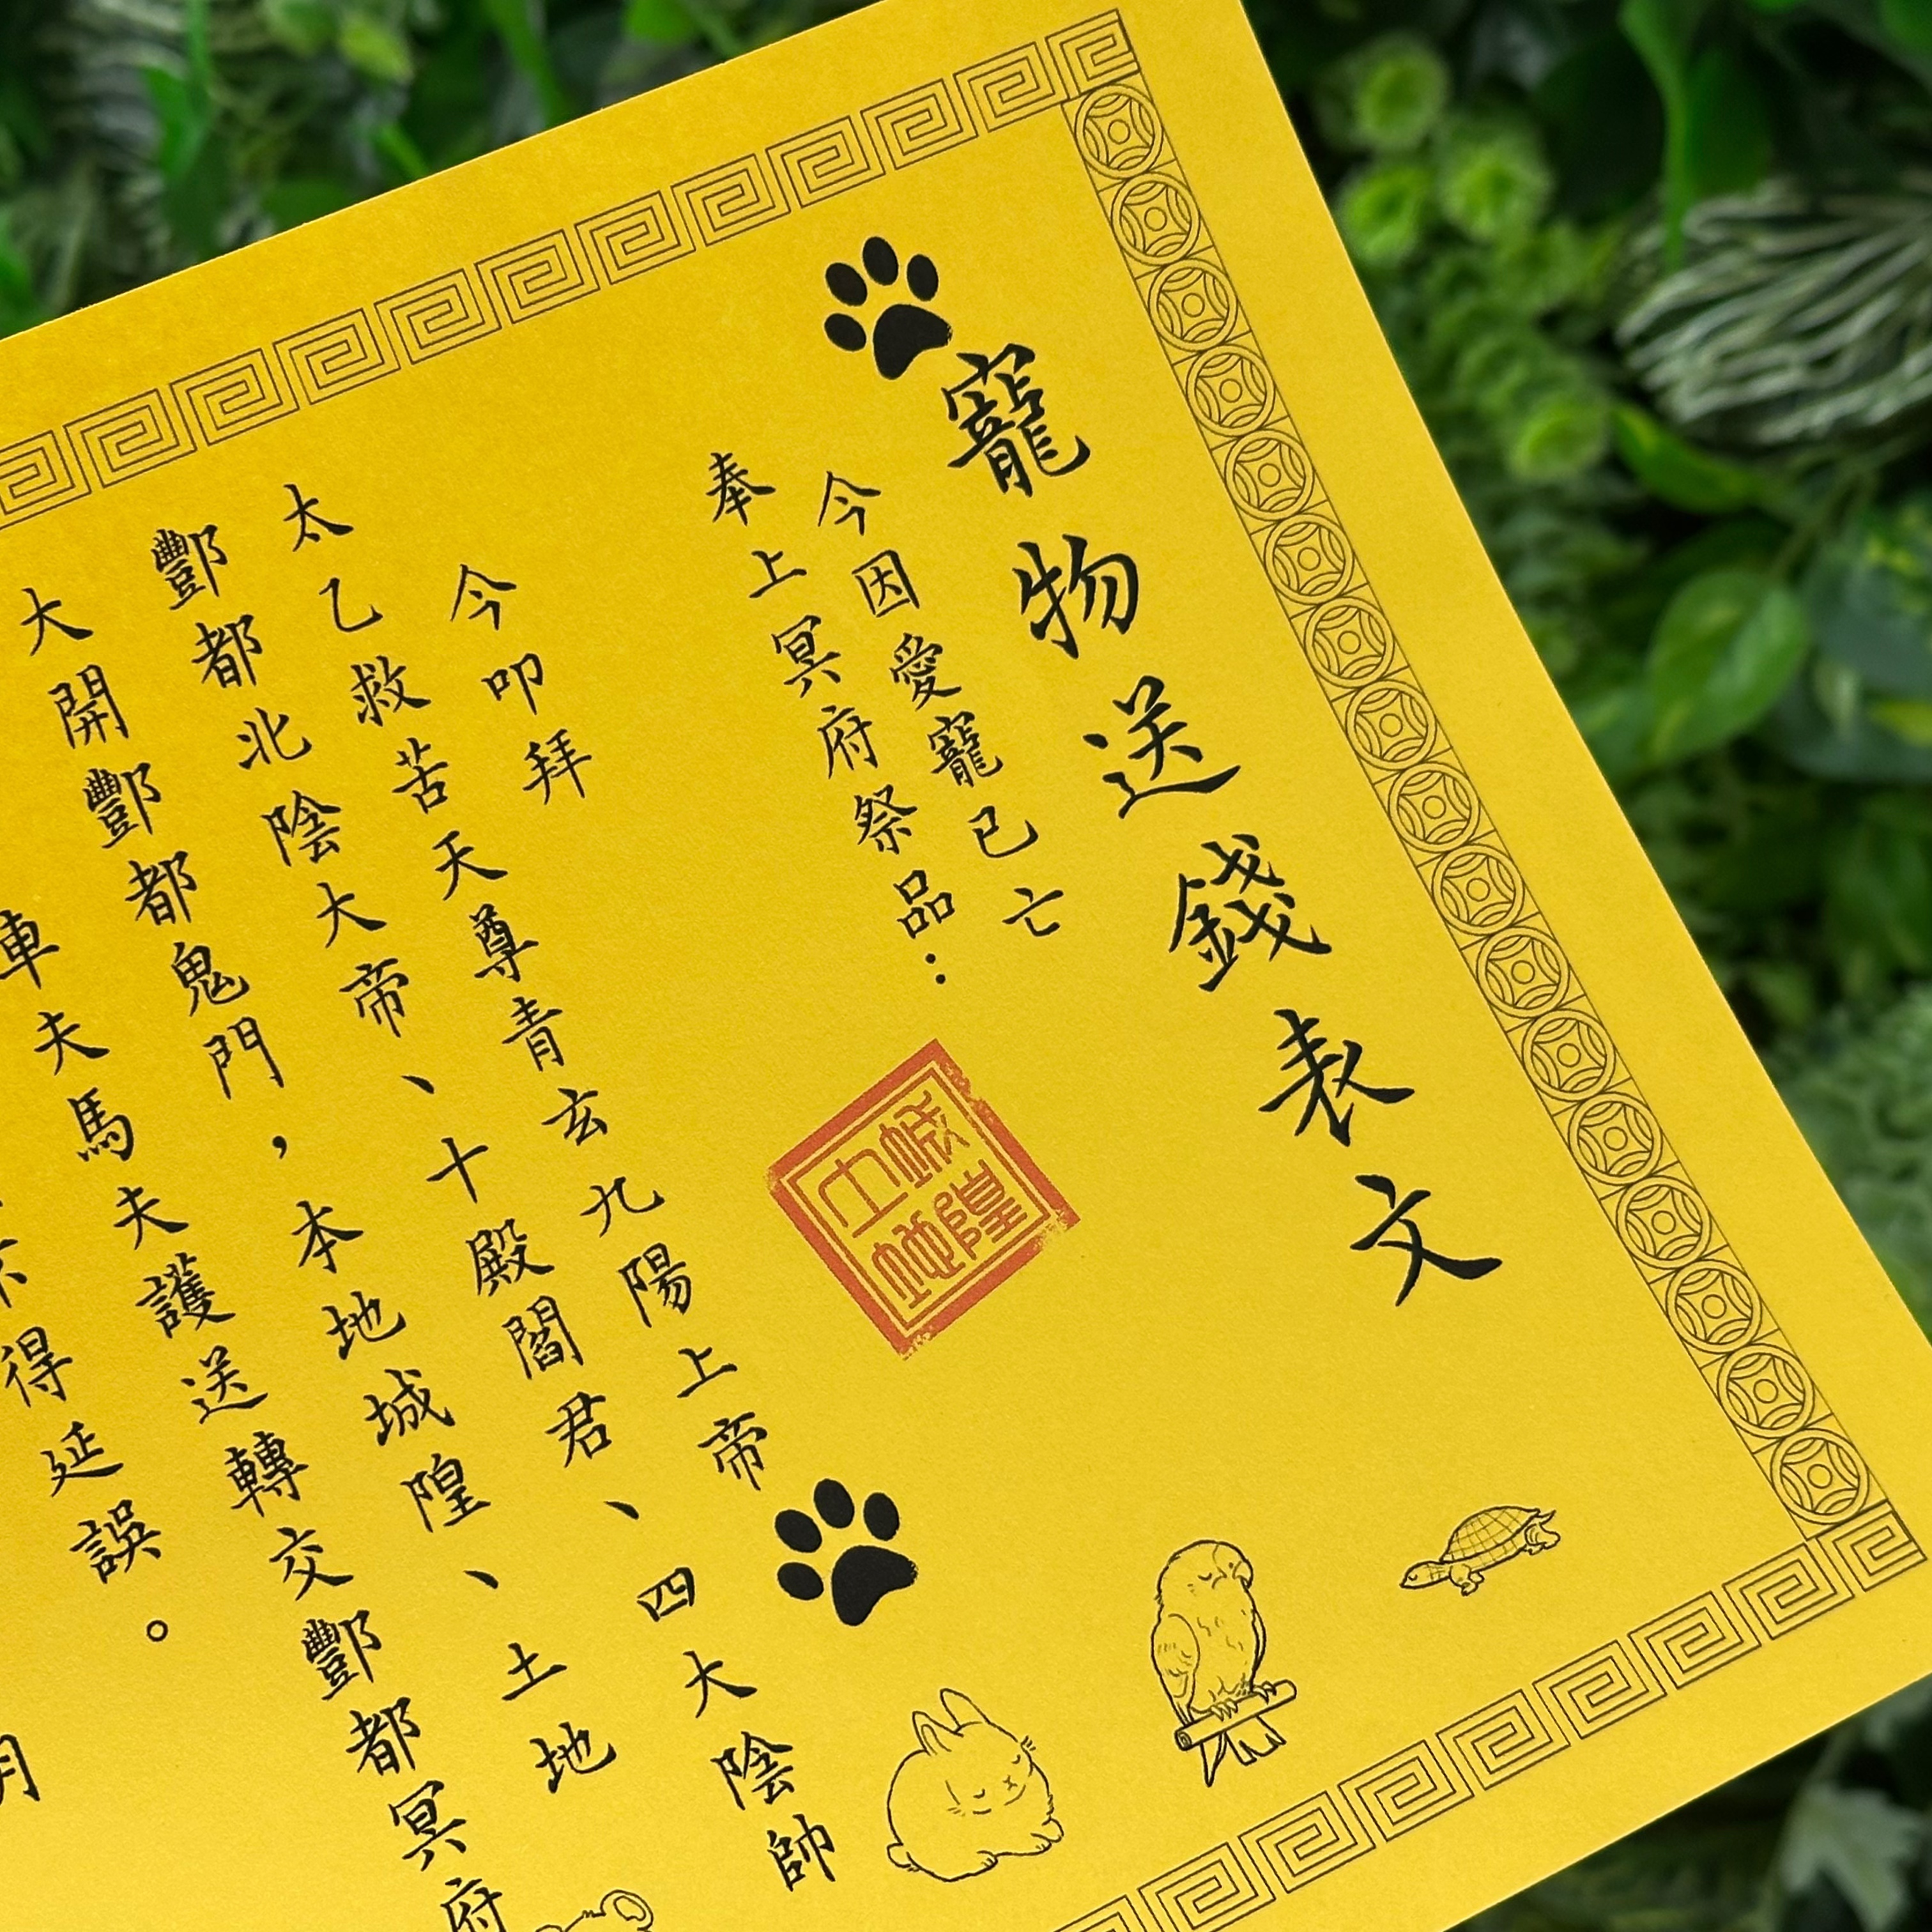 寵物送錢表文
今因愛寵已亡
奉上冥府祭品：
城隍
今叩拜
太乙救苦天尊青玄九陽上帝
酆都北陰大帝、十殿閻君、四大陰帥
大開酆都鬼門，本地城隍、土地
車夫馬夫護送轉交酆都冥府
得延誤。
月